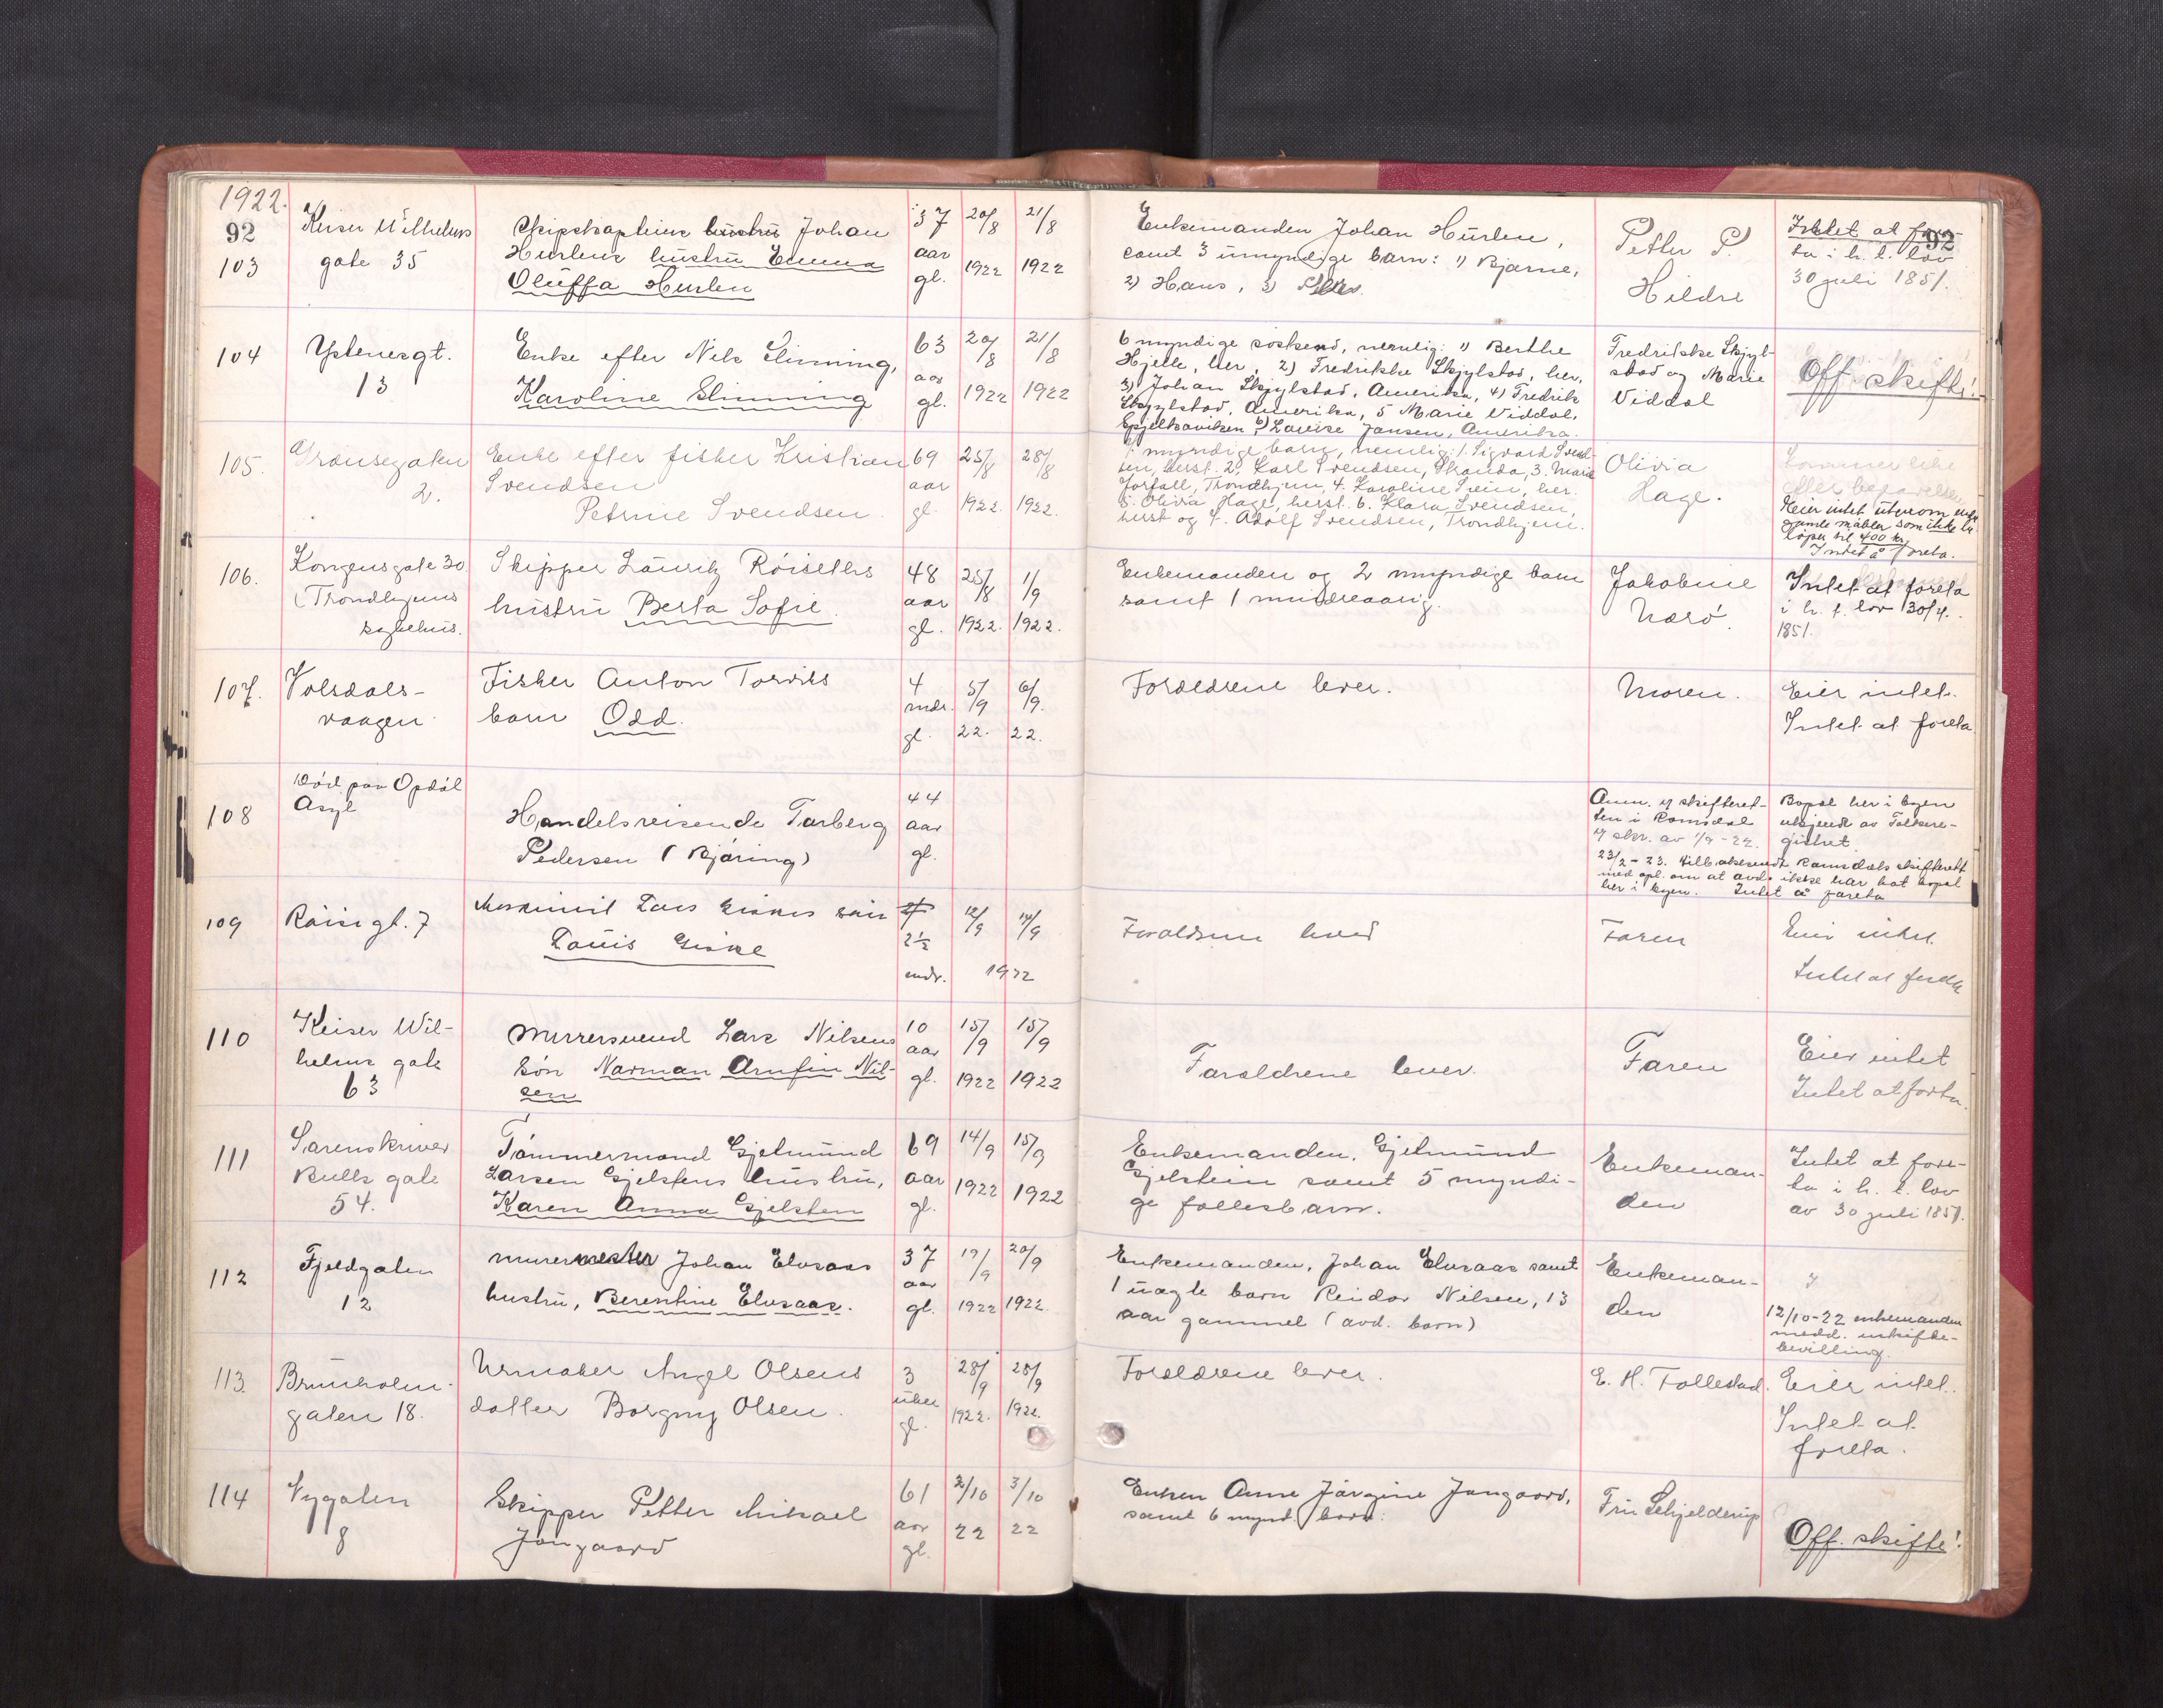 1922.
92
92
103
Keiser Wilhelms
gate 35
Skipskapteins hustru Johan
Hurlens hustru Emma
Oluffa Hurlen
37
aar
gl.
20/8
1922
21/8
1922
Enkemanden Johan Hurlen,
samt 3 umyndige barn: 1) Bjarne,
2) Hans, 3)
Petter P.
Hildre
Intet at fore-
ta i h. t. lov
30 juli 1851.
104
Ystenesgt.
13
Enke efter Nils Slinning,
Karoline Slinning
63
aar
gl.
20/8
1922
21/8
1922
6 myndige søskend, nemlig: 1) Berthe
Hjelle, her, 2) Fredrikke Skjylstad, her,
3) Johan Skjylstad, Amerika, 4) Fredrik
Skjylstad, Amerika, 5 Marie Viddal,
Spjelkaviken, 6) Lovise Jansen, Amerika.
Fredrikke Skjyl-
stad og Marie
Viddal
Off. skifte!
105.
Grænsegaten
2.
Enke efter fisker Kristian
Svendsen
Petrine Svendsen
69
aar
gl.
25/8
1922.
28/8
1922.
7 myndige barn, nemlig: 1. Sigvard Svend-
sen, herst. 2. Karl Svendsen, Stranda, 3. Marie
Trondhjem, 4. Karoline her.
5. Olivia Hage, herst. 6. Klara Svendsen,
herst og 7. Adolf Svendsen, Trondhjem.
Olivia
Hage.
Kommer like
efter begravelsen
Eier intet utenom endel
gamle møbler som ikke be-
løper til 400 kr.
Intet å foreta.
106.
Kongensgate 30
(Trondhjems
sykehus.
Skipper Lauritz Røiseths
hustru Berta Sofie
48
aar
gl.
25/8
1922.
1/9
1922.
Enkemanden og 2 myndige barn
samt 1 mindreaarig.
Jakobine
Nærø.
Intet at foreta
i h. t. lov 30/7.
1851.
107.
Volsdals-
vaagen
Fisker Anton Torviks
barn Odd.
4
mdr.
gl.
5/9
22.
6/9.
22.
Forældrene lever.
Moren.
Eier intet.
Intet at foreta
108
Død paa Opdøl
Asyl
Handelsreisende Torberg
Pedersen (Bjøring)
44
aar
gl.
Anm. af skifteret-
ten i Romsdal
af skr. av 1/9-22.
Bopæl her i byen
ukjendt av Folkere-
gistret
23/2-23. tilbakesendt Romsdals skifterett
med opl. om at avd. ikke har hat bopæl
her i byen. Intet å foreta
109
Røisgt. 7
Maskinist Lars Giskes søn
Louis Giske
2½
mdr.
12/9
14/9
1922
Forældrene lever
Faren
Eier intet.
Intet at foreta
110
Keiser Wil-
helms gate
63
Murersvend Lars Nilsens
søn Norman Arnfin Nil-
sen
10
aar
gl.
15/9
1922
15/9
1922
Forældrene lever.
Faren
Eier intet
Intet at foreta.
111
Sorenskriver
Bulls gate
54.
Tømmermand Gjelmund
Larsen Gjelstens hustru,
Karen Anna Gjelsten
69
aar
gl.
14/9
1922
15/9
1922
Enkemanden, Gjelmund
Gjelstein samt 5 myndi-
ge fællesbarn.
Enkeman-
den
Intet at fore-
ta i h. t. lov
av 30 juli 1851.
112
Fjeldgaten
12
Murermester Johan Elvsaas
hustru, Berentine Elvsaas.
37
aar
gl.
19/9
1922
20/9
1922
Enkemanden, Johan Elvsaas samt
1 uægte barn Reidar Nilsen, 13
aar gammel (avd. barn)
Enkeman-
den
12/10-22 enkemanden
medd. uskifte-
bevilling.
113.
Brunholm-
gaten 18.
Urmaker Angel Olsens
datter Borgny Olsen.
3
uker
gl.
28/9
1922.
28/9
1922.
Forældrene lever.
E. H. Follestad.
Eier intet.
Intet at
foreta.
114
Nygaten
8
Skipper Petter Mikael
Jangaard
61
aar
gl.
2/10
22
3/10
22
Enken Anne Jørgine Jangaard,
samt 6 mynd. barn.
Fru Schjelderup
Off. skifte!